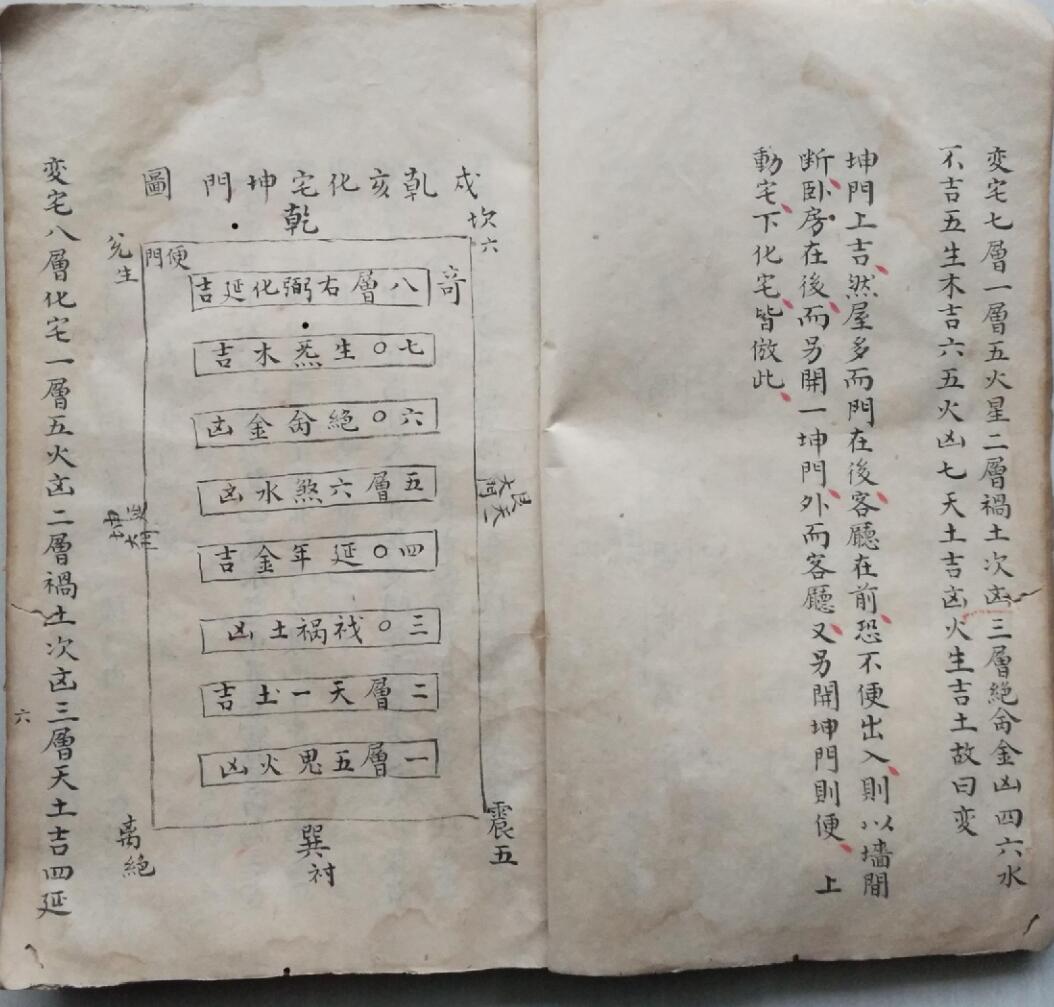 変宅七層一層五火星二層禍土次凶三層絶命金凶四六水
不吉五生木吉六五火凶七天土吉凶火生吉土故曰変
坤門上吉然屋多而門在後客廳在前恐不便出入則以墻間
断卧房在後而另開一坤門外而客廳又另開坤門則便上
動宅下化宅皆倣此
戌乾亥化宅坤門圖
乾
坎六
兌生
便門
八層右弼化延吉
七〇生炁木吉
六〇絶命金凶
五層六煞水凶
四〇延年金吉
三〇禍土凶
二層天一土吉
一層五鬼火凶
大門
震五
巽
離絶
変宅八層化宅一層五火凶二層禍土次凶三層天土吉四延
六